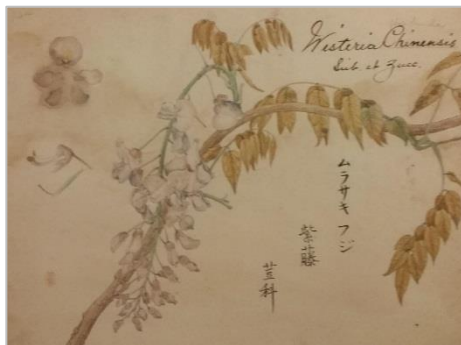 Wisteria Chinensis
Sieb. et Zucc.
ムラサキフジ
紫藤
荳科